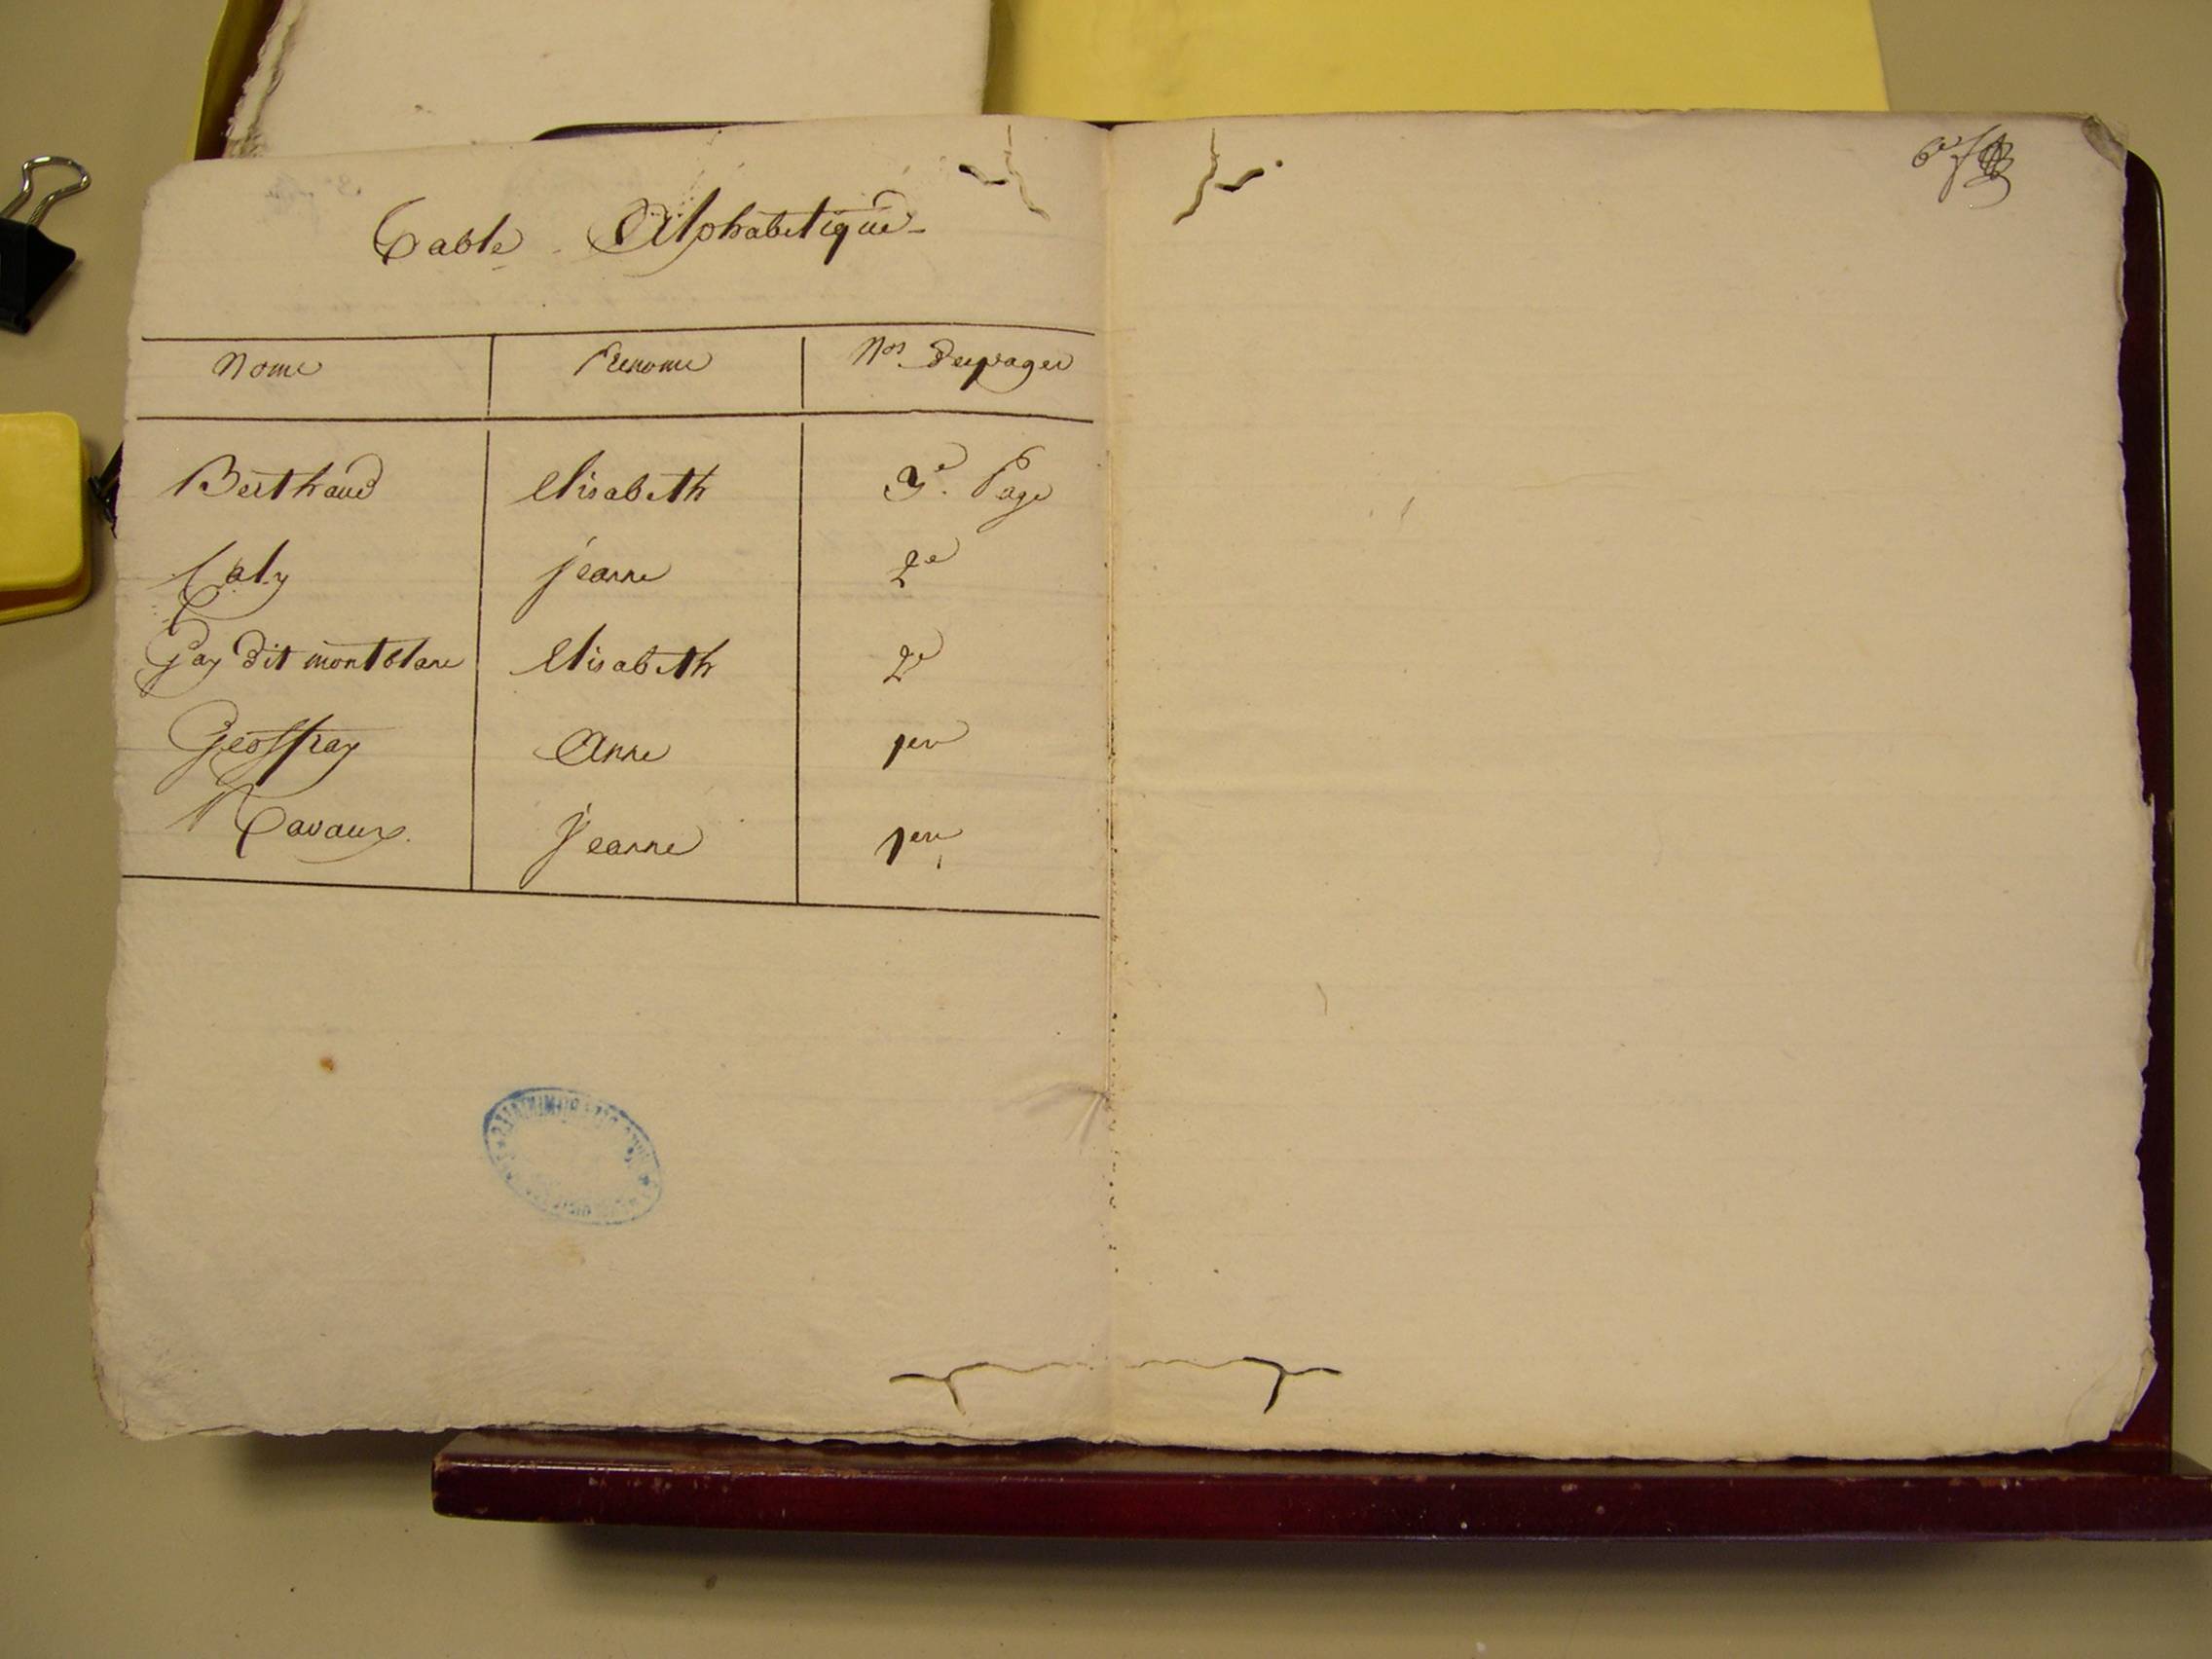 Table Alphabetique
Noms Prenoms Nos. des pages
Berthaud elisabeth 3e. Page
Caty jeanne 2e
Gay dit montblanc elisabeth 2e
Geoffray Anne 1ere
Tavaux. Jeanne 1ere